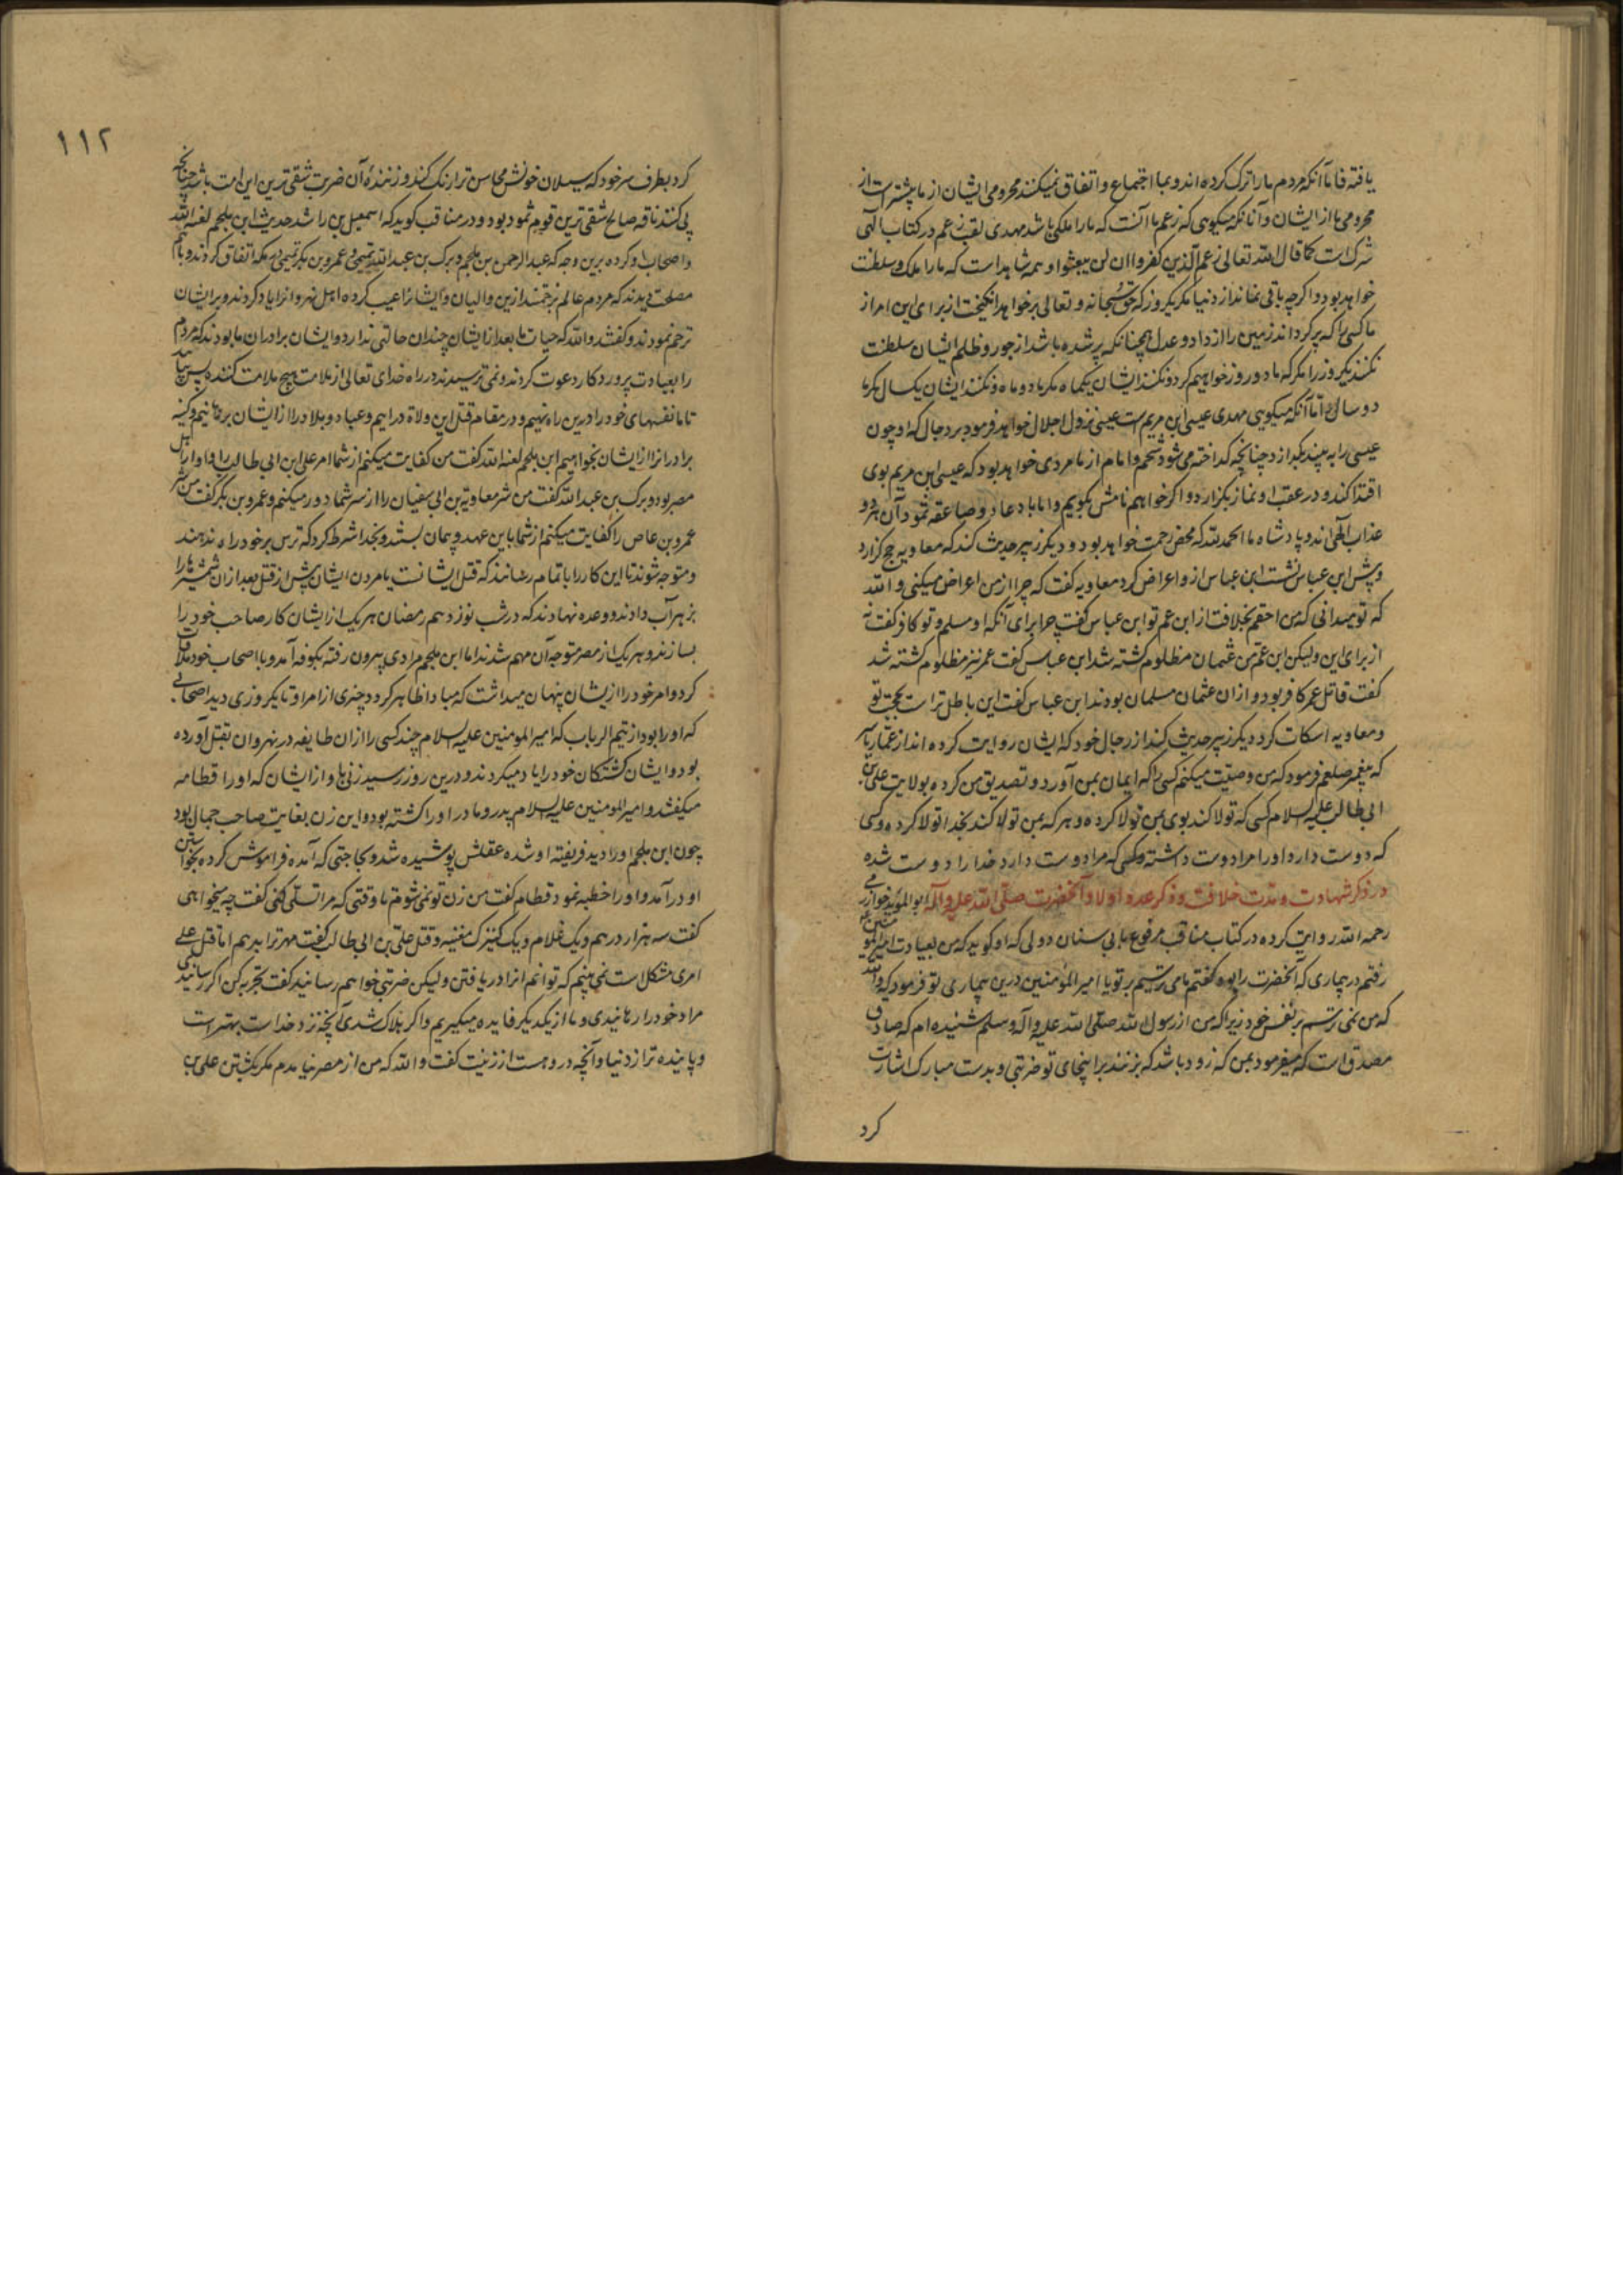 یافته فاما آنکه مردم ما را ترک کرده اند و بما اجتماع و اتفاق نمیکنند محرومی ایشان از ما بیشتر است از
محرومی ما از ایشان و آنانکه میگویی که زعم ما آنست که ما را ملکی باشد مهدی لقب زعم در کتاب الهی
شرک است کما قال الله تعالی زعم الذین کفروا ان لن یبعثوا و همه شاهد است که ما را ملک و سلطنت
خواهد بود و اکرچه باقی نماند از دنیا مگر یکروز که حق سبحانه و تعالی برخواهد انگیخت از برای این امر از
ما کسی را که پر کرداند زمین را از داد و عدل همچنانکه پر شده باشد از جور و ظلم ایشان سلطنت
نکنند یکروز را مکر که ما دو روز خواهیم کرد و نکنند ایشان یکماه مکر ما دو ماه و نکنند ایشان یکسال مکر ما
دو سال و اما آنکه میگویی مهدی عیسی ابن مریم است عیسی نزول اجلال خواهد فرمود بر دجال که او چون
عیسی را به بیند بگدازد چنانچه گداخته می شود شحم و امام از ما مردی خواهد بود که عیسی ابن مریم بوی
اقتدا کند و در عقب او نماز بگزارد و اکر خواهم نامش بگویم و اما باد عاد و صاعقه ثمود آن هر دو
عذاب الهی اند و پادشاه ما الحمد لله که محض رحمت خواهد بود و دیگر زبیر حدیث کند که معاویه حج گزارد
و پیش ابن عباس نشست ابن عباس ازو اعراض کرد معاویه گفت که چرا از من اعراض میکنی و الله
که تو میدانی که من احقم بخلافت از ابن عم تو ابن عباس گفت چرا برای آنکه او مسلم و تو کافر گفت نه
از برای این ولیکن ابن عم من عثمان مظلوم کشته شد ابن عباس گفت عمر نیز مظلوم کشته شد
گفت قاتل عمر کافر بود و از ان عثمان مسلمان بودند ابن عباس گفت این باطل تر است بحجت تو
و معاویه اسکات کرد دیگر زبیر حدیث کند از رجال خود که ایشان روایت کرده اند از عمار یاسر
که پیغمبر صلعم فرمود که من وصیت میکنم کسی را که ایمان بمن آورد و تصدیق من کرده بولایت علی بن
ابی طالب علیه السلام کسی که تولا کند بوی بمن تولا کرده و هر که بمن تولا کند بخدا تولا کرده و کسی
که دوست دارد او را مرا دوست داشته و کسی که مرا دوست دارد خدا را دوست شده
در ذکر شهادت و مدت خلافت و ذکر عدد اولاد آنحضرت صلی الله علیه و آله ابو المؤید خوارزمی
رحمه الله روایت کرده در کتاب مناقب مرفوع بابی سنان دولی که او گوید که من بعیادت امیر المومنین ع
رفتم در بیماری که آنحضرت را بود گفتم ما می ترسیم بر تو یا امیر المؤمنین درین بیماری تو فرمود که والله
که من نمی ترسم بر نفس خود زیرا که من از رسول الله صلی الله علیه و آله و سلم شنیده ام که صادق
مصدق است که میفرمود بمن که زود باشد که بزنند بر اینجای تو ضربتی و بدست مبارک اشارت
کرد
۱۱۲
کرد بطرف سر خود که سیلان خونش محاسن ترا رنگ کند و زننده آن ضربت شقی ترین این امت باشد چنانچه
پی کننده ناقه صالح شقی ترین قوم ثمود بود و در مناقب گوید که اسمعیل بن راشد حدیث ابن ملجم لعنه الله
و اصحاب او کرده برین وجه که عبد الرحمن بن ملجم و برک بن عبد الله تمیمی و عمرو بن بکر تمیمی در مکه اتفاق کردند و باهم
مصلحت دیدند که مردم عالم بزحمتند ازین والیان و ایشانرا عیب کرده اهل نهروانرا یاد کردند و بر ایشان
ترحم نمودند و گفتند والله که حیات ما بعد از ایشان چندان حالتی ندارد و ایشان برادران ما بودند که مردم
را بعبادت پروردکار دعوت کردند و نمی ترسیدند در راه خدای تعالی از ملامت هیچ ملامت کننده پس بیا
تا ما نفسهای خود را درین راه نهیم و در مقام قتل این ولاة درآیم و عباد و بلاد را از ایشان برهانیم و کینه
برادرانرا از ایشان بخواهیم ابن ملجم لعنه الله گفت من کفایت میکنم از شما امر علی ابن ابی طالب را و او از اهل
مصر بود و برک بن عبد الله گفت من شر معاویة بن ابی سفیان را از سر شما دور میکنم و عمرو بن بکر گفت من شر
عمرو بن عاص را کفایت میکنم از شما باین عهد و پیمان بستند و بخدا شرط کرد که ترس بر خود راه ندهند
و متوجه شوند تا این کار را باتمام رسانند که قتل ایشانست یا مردن ایشان پیش از قتل بعد از ان شمشیرها را
بزهر آب دادند و وعده نهادند که در شب نوزدهم رمضان هر یک از ایشان کار صاحب خود را
بسازند و هر یک از مصر متوجه آن مهم شدند اما ابن ملجم مرادی بیرون رفته بکوفه آمد و با اصحاب خود ملاقات
کرد و امر خود را از یشان پنهان میداشت که مبادا ظاهر کردد چیزی از امر او تا یکروزی دید اصحابی
که او را بود از تیم الرباب که امیر المومنین علیه السلام چند کسی را ازان طایفه در نهروان بقتل آورده
بود و ایشان کشتکان خود را یاد میکردند و درین روز رسید زنی ها و از ایشان که او را قطامه
میگفتند و امیر المومنین علیه السلام پدر و مادر او را کشته بود و این زن بغایت صاحب جمال بود
چون ابن ملجم او را دید فریفته او شده عقلش پوشیده شد و بحاجتی که آمده فراموش کرده بخواستن
او درآمد و او را خطبه نمود قطام گفت من زن تو نمی شوم تا وقتی که مرا تسلی کنی گفت چه میخواهی
گفت سه هزار درهم و یک غلام و یک کنیزک مغنیه و قتل علی بن ابی طالب گفت مهر ترا بدهم اما قتل علی
امری مشکل است نمی بینم که توانم انرا دریافتن ولیکن ضربتی خواهم رسانید گفت تجربه کن اگر رسانیدی
مراد خود را رهانیدی و ما از یکدیگر فایده میگیریم و اکر هلاک شدی آنچه نزد خداست بهتر است
و پاینده تر از دنیا و آنچه در وهست از زینت گفت والله که من از مصر نیامدم مگر بکشتن علی بن